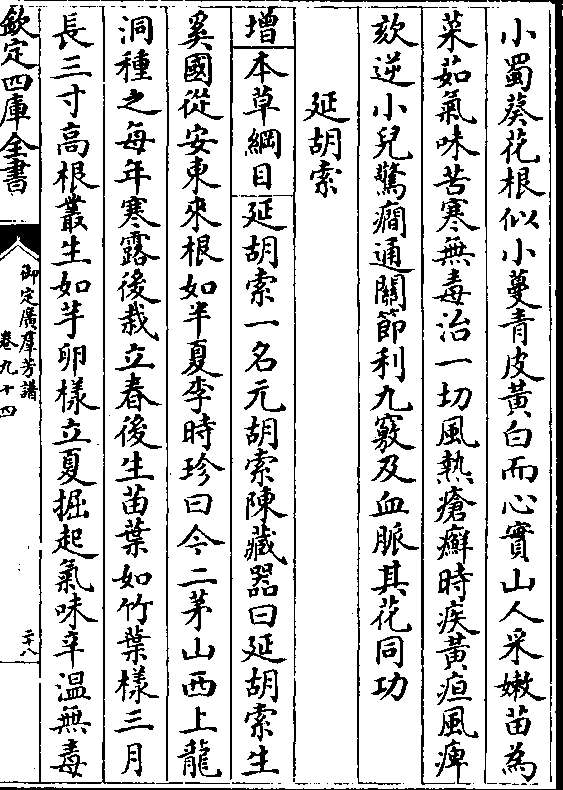 小蜀葵花根似小蔓青皮黄白而心實山人采嫩苗為
菜茹氣味苦寒無毒治一切風熱瘡癬時疾黄疸風痺
欬逆小兒驚癇通關節利九竅及血脈其花同功
延胡索
增本草綱目延胡索一名元胡索陳藏器曰延胡索生
奚國從安東來根如半夏李時珍曰今二茅山西上龍
洞種之每年寒露後栽立春後生苗葉如竹葉樣三月
長三寸高根叢生如芋卵樣立夏掘起氣味辛温無毒
欽定四庫全書
御定廣羣芳譜
卷九十四
二十八